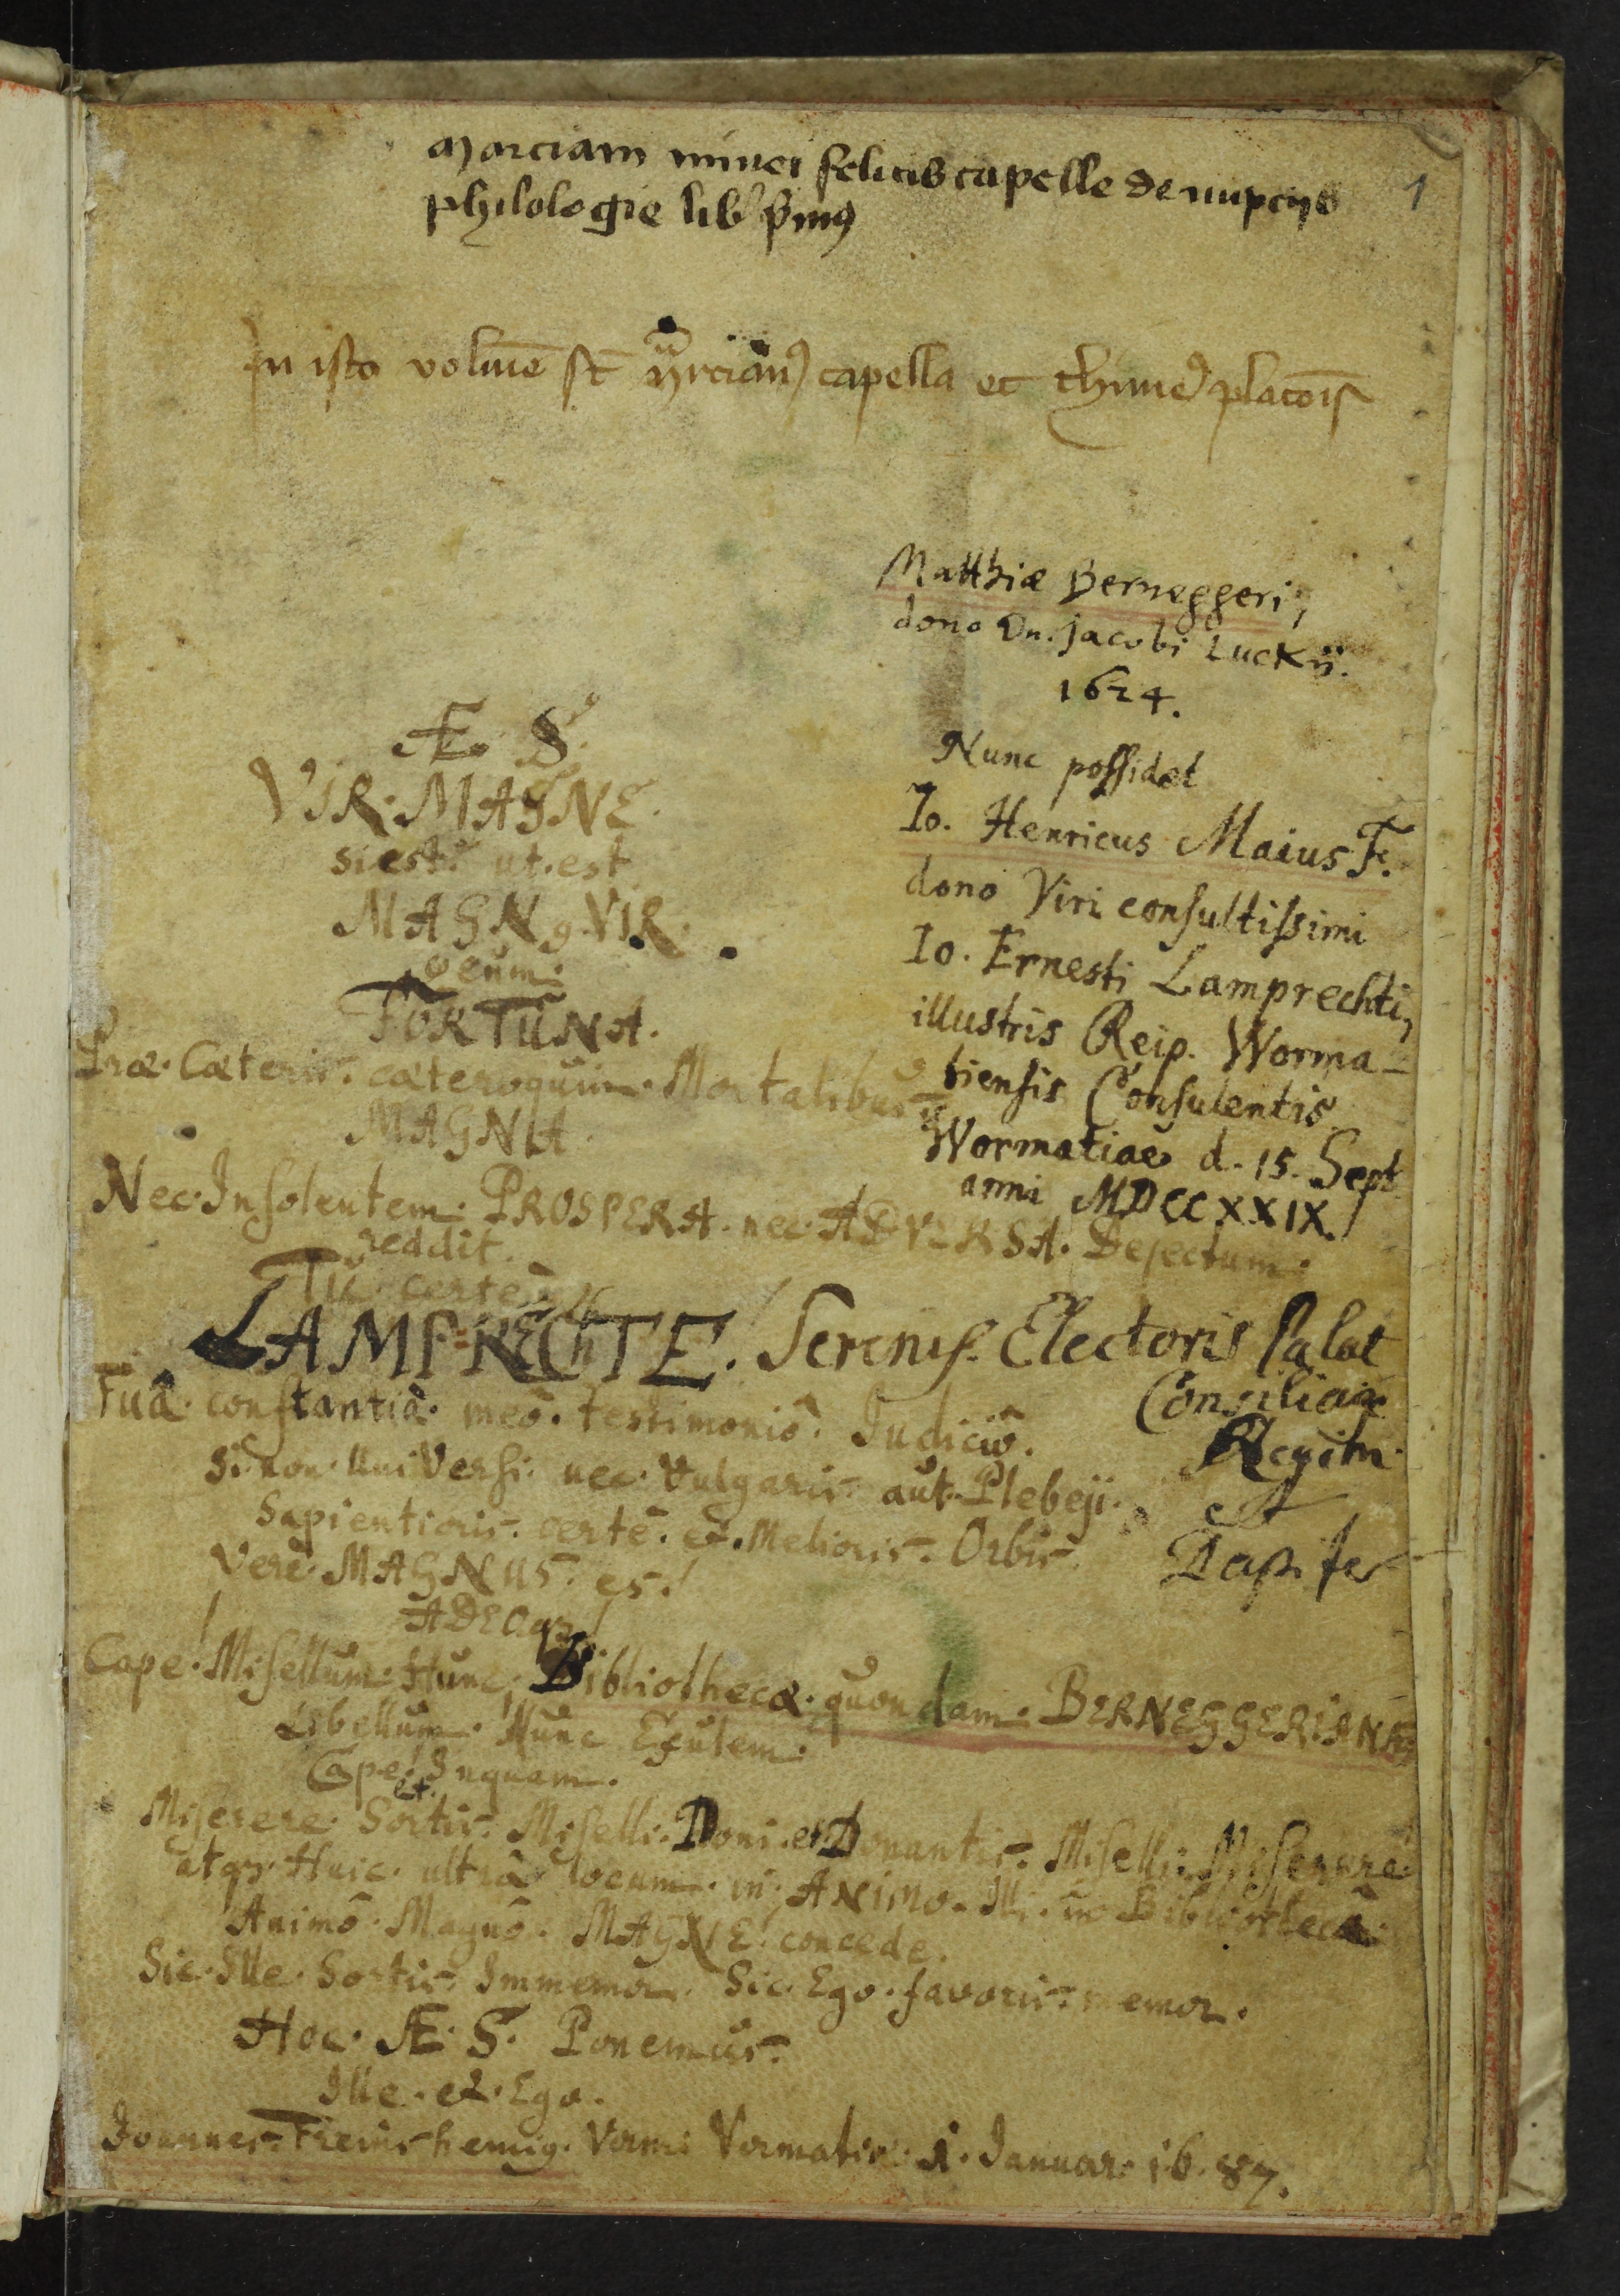 Marciani minei felicis capelle de nupcijs
philologie lib' p̄mꝰ
1
In isto volumīe st̄ Marcianꝰ capella et thimeꝰ platoīs
Matthiæ Berneggeri,
dono Dn. Jacobi Luckii.
1624.
Nunc possidet
Io. Henricus Maius F.
dono Viri consultissimi
Io. Ernesti Lamprechti,
illustris Reip. Worma-
tiensis Consulentis
Wormatiae d. 15. Sept
anni MDCCXXIX.
Æ. S.
VIR. MAGNE.
si est. ut. est
MAGNꝰ. VIR.
FORTUNA.
Præ. Cæteris. cæteroquin. Mortalibus.
MAGNA.
Nec. Insolentem. PROSPERA. nec. ADVERSA. Dejectum.
reddit.
Tu. certe.
LAMPRECHTE! Sereniss. Electoris Palat
Consiliar
Regim.
et
Dapifer
Tuâ. constantiâ. meô. testimoniô. Judiciô.
Si. non. Universi. nec. Vulgaris. aut. Plebeji.
Sapientioris. certè. et. Melioris. Orbis.
Verè. MAGNUS. es!
ADEOqꝫ!
Cape. Misellum. Hunc, Bibliothecæ. quondam. BERNEGGERIANÆ
Libellum. Nunc Exulem.
Cape! Inquam.
et.
Miserere. Sortis. Miselli. Doni. et Donantis. Miselli. Miserere.
atqꝫ. Huic. ultrà locum. in. ANIMO. Illi. in Bibliothecâ.
Animô. Magnô. MAGNE! concede.
Sic. Ille. Sortis. Immemor. Sic. Ego. favoris. memor.
Hoc. Æ. S. Ponemus.
Ille. et. Ego.
Joannes. Freinshemiꝰ. Vormatiæ. 1. Januar. 16.87.